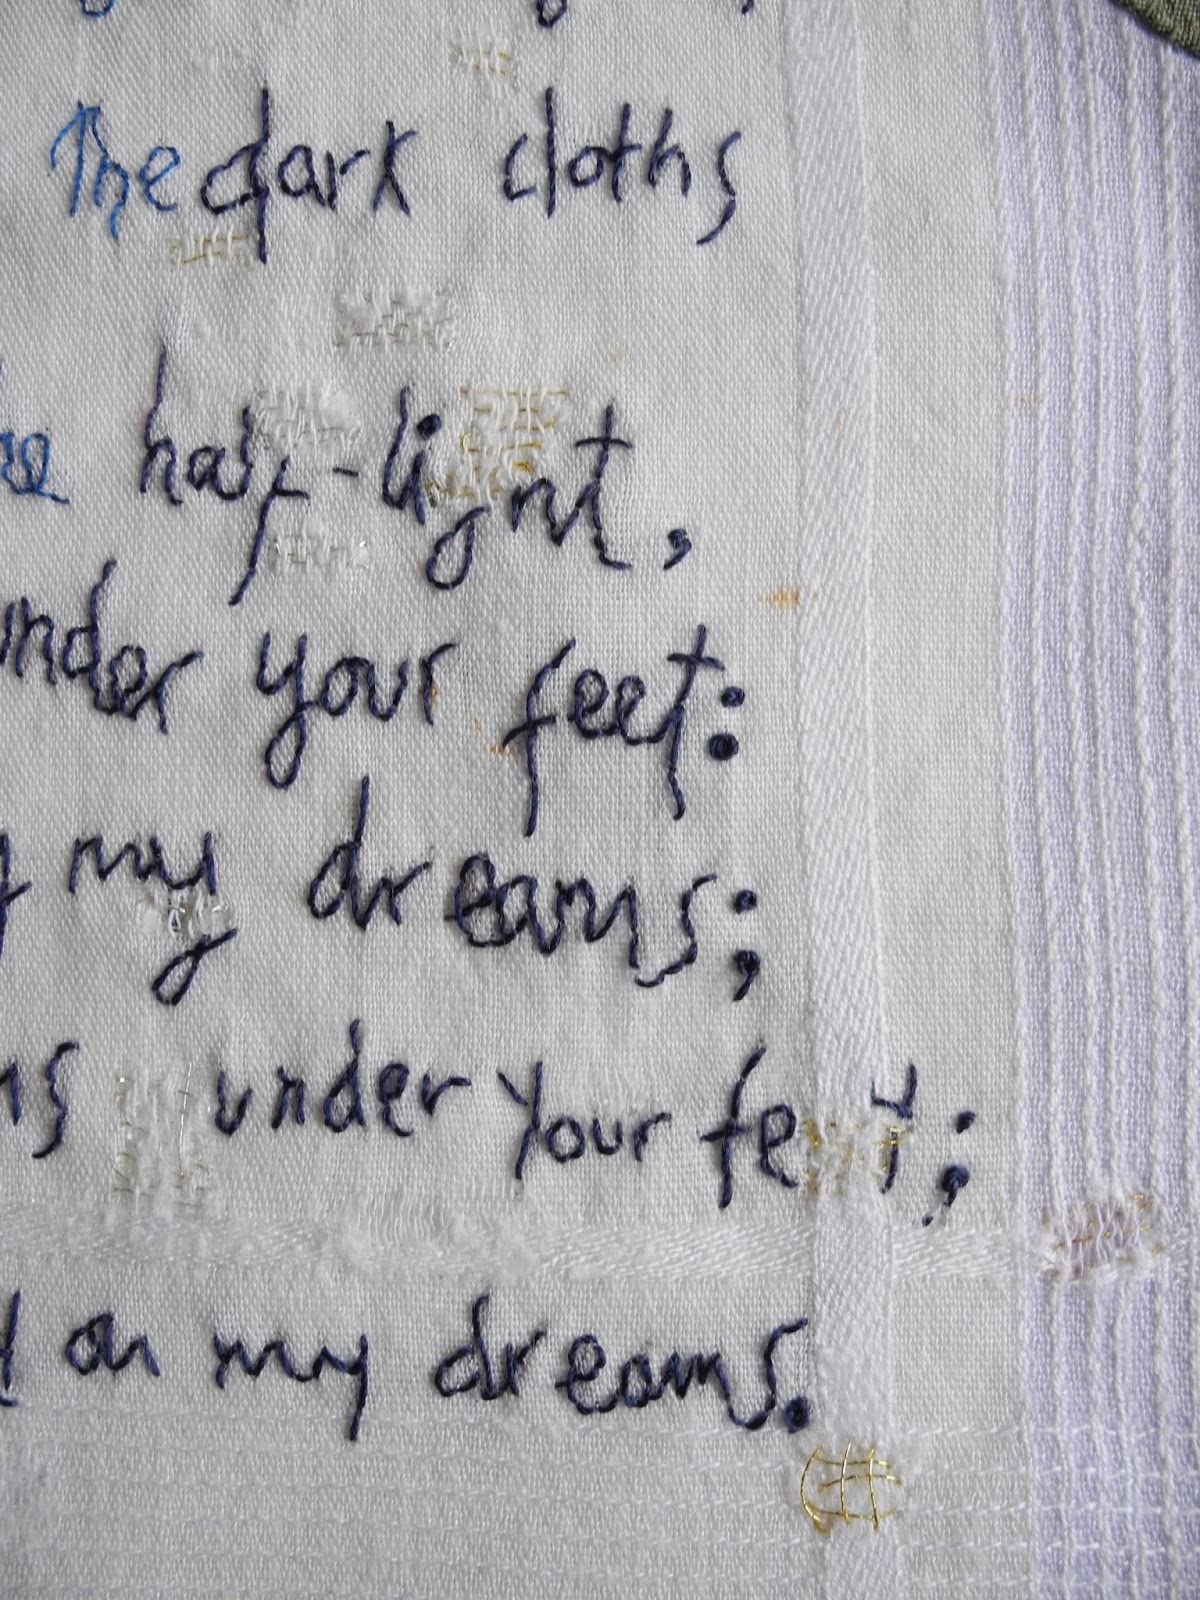 The dark cloths
half-light,
under your feet:
my dreams;
under your feet;
on my dreams.